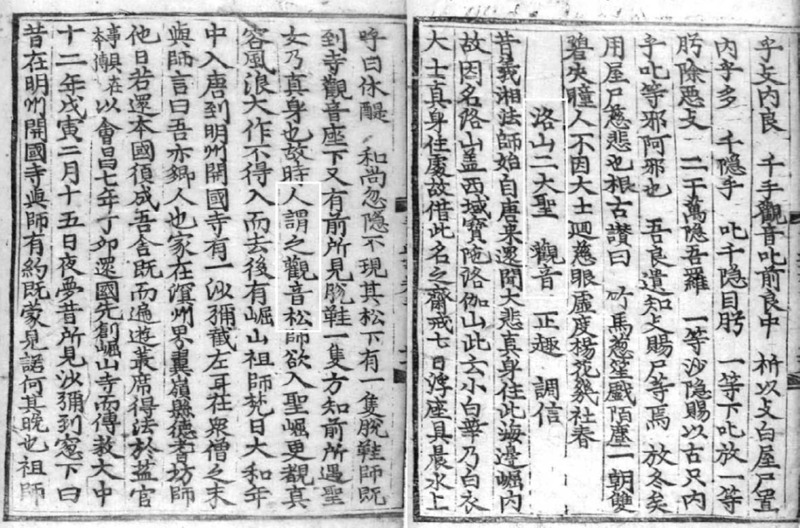 乎攴內良 千手觀音叱前良中 祈以攴白屋尸置
內乎多 千隱手 叱千隱目肹 一等下叱放一等
肹除惡攴 二于萬隱吾羅 一等沙隱賜以古只內
乎叱等邪阿邪也 吾良遺知攴賜尸等焉 放冬矣
用屋尸慈悲也根古讚曰 竹馬葱笙戱陌塵一朝雙
碧失瞳人不因大士廻慈眼虛度楊花幾社春
洛山二大聖 觀音 正趣 調信
昔義湘法師始自唐來還聞大悲真身住此海邊崛內
故因名洛山盖西域寶陁洛伽山此云小白華乃白衣
大士真身住處故借此名之齋戒七日浮座具晨水上
呼曰休醍 和尚忽隱不現其松下有一隻脫鞋師旣
到寺觀音座下又有前所見脫鞋一隻方知前所遇聖
女乃真身也故時人謂之觀音松師欲入聖崛更覩真
容風浪大作不得入而去後有崛山祖師梵日大和年
中入唐到明州開國寺有一沙彌截左耳在衆僧之末
與師言曰吾亦鄉人也家在溟州界翼嶺縣德耆坊師
他日若還本國須成吾舍旣而遍遊叢席得法於塩官
事具在本傳以會昌七年丁卯還國先創崛山寺而傳教大中
十二年戊寅二月十五日夜夢昔所見沙彌到窓下曰
昔在明州開國寺與師有約旣蒙見諾何其晚也祖師